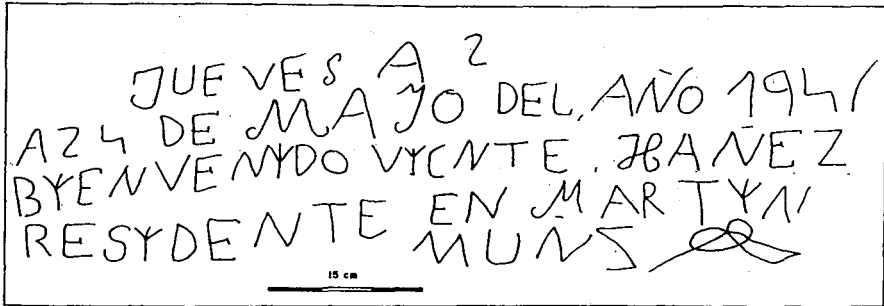 JUEVES A 2
A24 DE MAYO DEL AÑO 1941
BYENVENYDO VYCNTE. YBAÑEZ
RESYDENTE EN MARTYN
MUÑS
15 cm